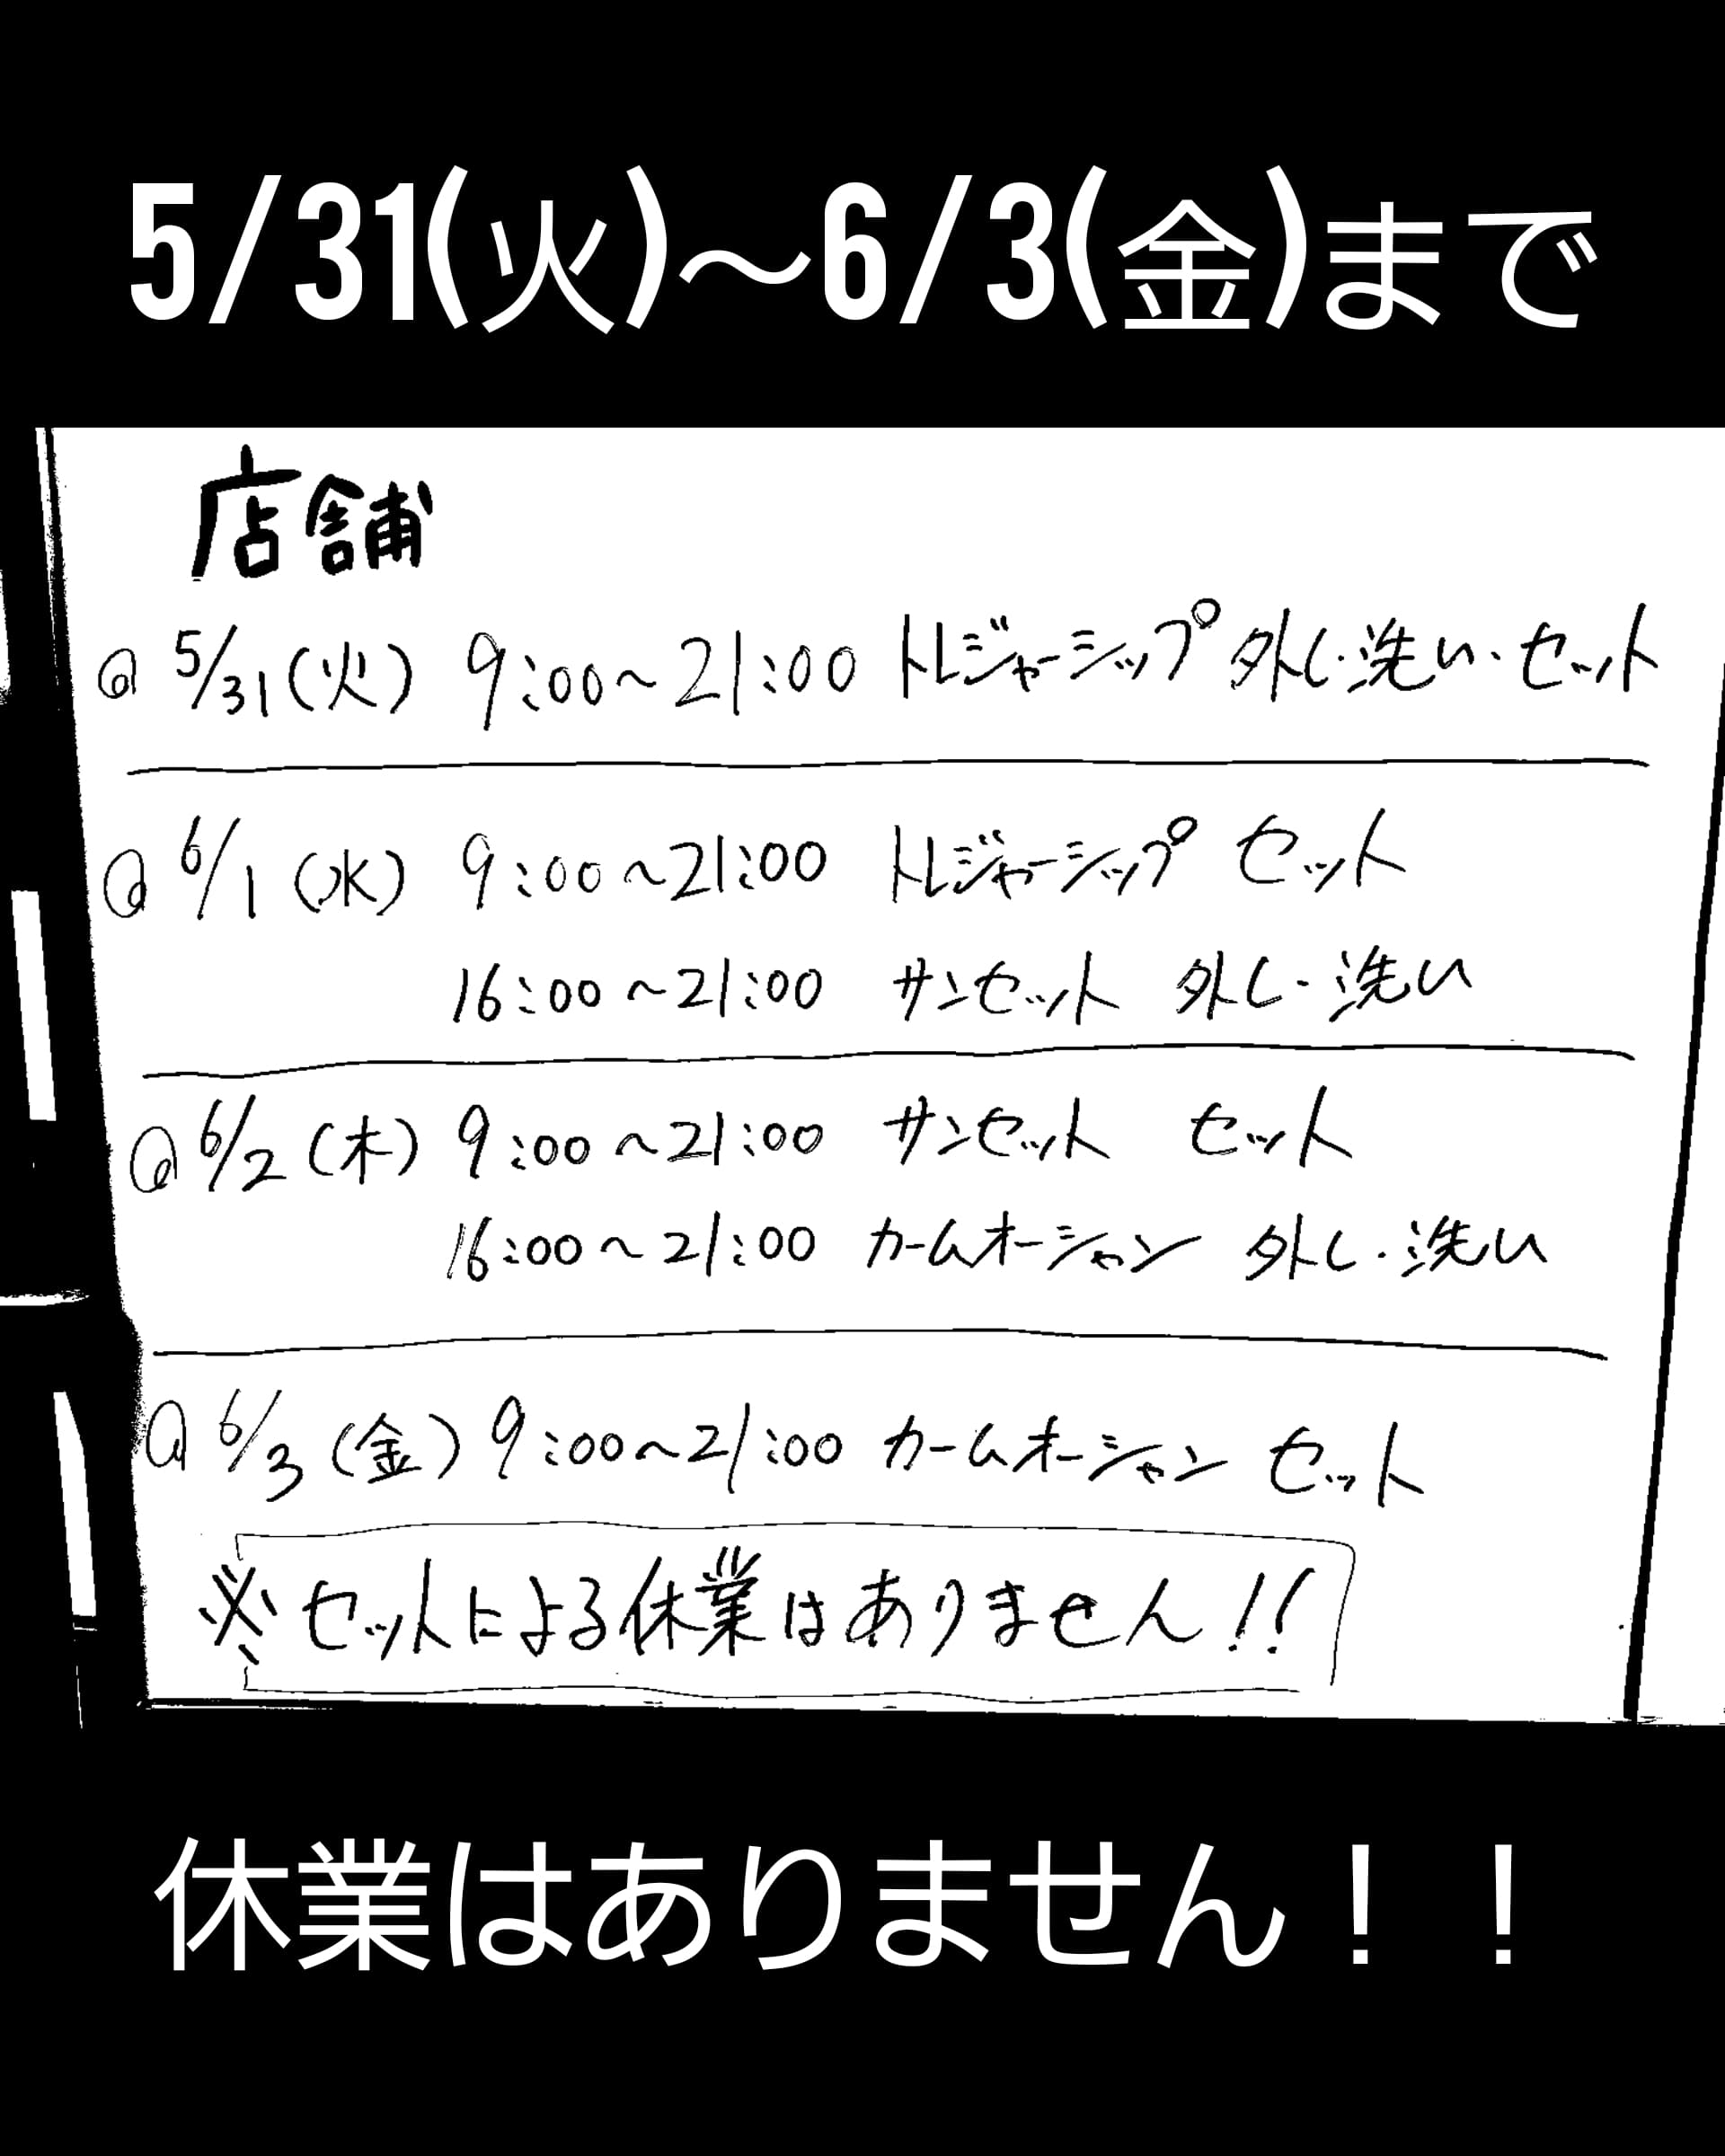 5/31(火)〜6/3(金)まで
店舗
@ 5/31(火) 9:00〜21:00 トレジャーシップ 外し・洗い・セット
@ 6/1(水) 9:00〜21:00 トレジャーシップ セット
16:00〜21:00 サンセット 外し・洗い
@ 6/2(木) 9:00〜21:00 サンセット セット
16:00〜21:00 カームオーシャン 外し・洗い
@ 6/3(金) 9:00〜21:00 カームオーシャン セット
※セットによる休業はありません!!
休業はありません！！